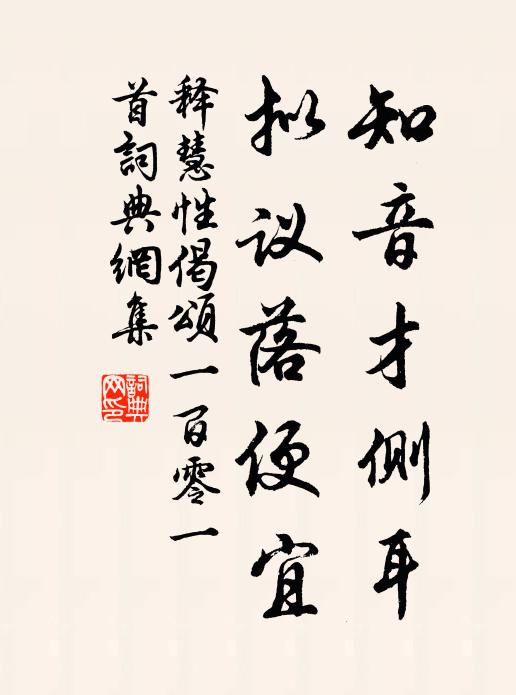 知音才侧耳
拟议落便宜
释慧性偈頌一百零一
首詞典網集
詞典网印